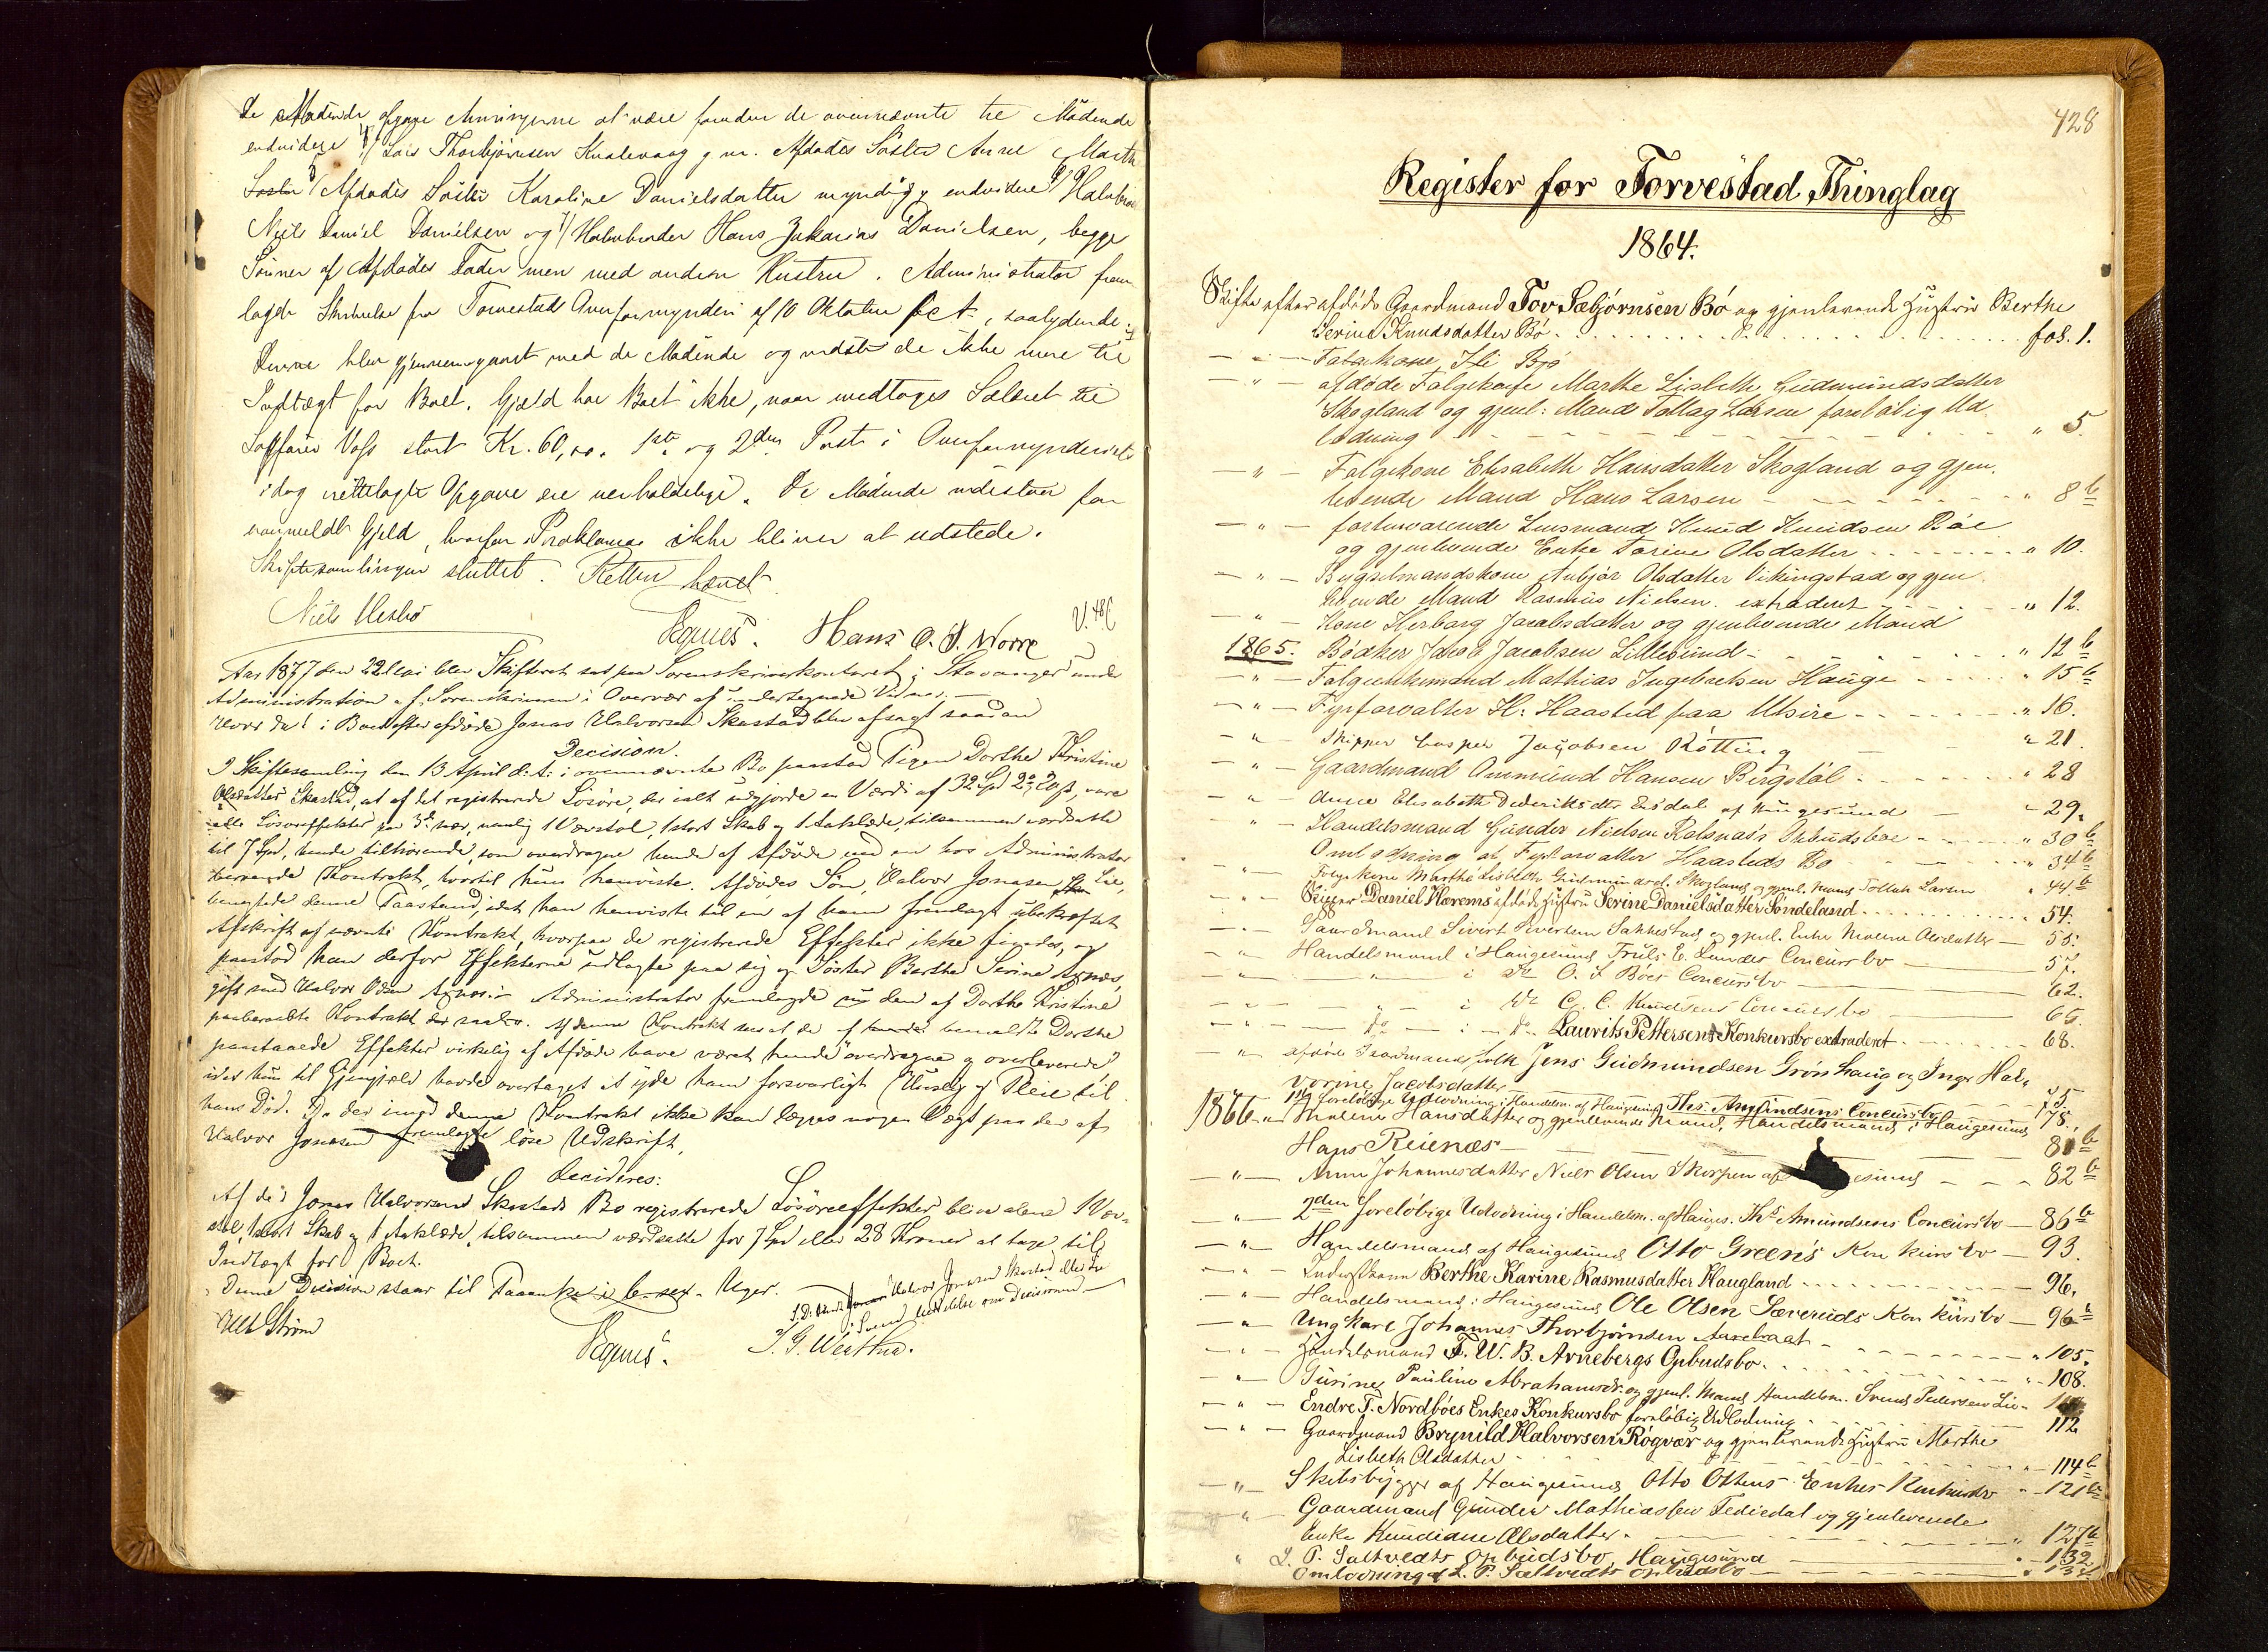 De Mødende opgave Arvingerne at være foruden de ovennævnte tre Mødende
endvidere 4/ Lars Thorbjørnsen Kvalevaag g m. Afdødes Søster Anne Marthe
Søster 5/ Afdødes Søster Karoline Danielsdatter myndig, endvidere 6/ Halvbroder
Niels Daniel Danielsen og 7/ Halvbroder Hans Zakarias Danielsen, begge
Sønner af Afdødes Fader men med anden Hustru. Administrator frem
lagde Skrivelse fra Torvestads Overformynderi af 10 Oktober f.A., saalydende:
Denne blev gjennemgaaet med de Mødende og vidste de ikke mere til
Indtægt for Boet. Gjæld har Boet ikke, naar undtages Salæret til
Sagfører Voss stort Kr. 60,00. 1ste og 2den Post i Overformynderiets
idag fremlagte Opgave ere uerholdelige. De Mødende indestaar for
uanmeldt Gjeld, hvorfor Proklama ikke bliver at udstede.
Skiftesamlingen sluttet. Retten hævet.
Niels Hesbø
Hans O. S. Norre
Aar 1877 den 22 Mai blev Skifteret sat paa Sorenskriverkontoret i Stavanger under
Administration af Sorenskriveren i Overvær af undertegnede Vidner.
Hvor da: i Boet efter afdøde Jonas Halvorsen Skastad blev afsagt saadan
Decision.
I Skiftesamling den 13 April d. A. i ovennævnte Bo paastod Pigen Dorthe Kristine
Olsdatter Skastad, at af det registrerede Løsøre, der ialt udgjorde en Værdi af 32 Spd 2 , vare
alle Løsøreffekter paa 3de nær, nemlig 1 Vævstol, 1 stort Skab og 1 Aaklæde, tilsammen værdsatte
til 7 Spd, hende tilhørende, som overdragne hende af Afdøde ved en hos Administrator
beroende Kontrakt, hvortil hun henviste. Afdødes Søn, Halvor Jonasen Lie,
benegtede denne Paastand, idet han henviste til en af ham fremlagt ubekræftet
Afskrift af nævnte Kontrakt, hvorpaa de registrerede Effekter ikke findes, og
paastod han derfor Effekterne udlagte paa sig og Søster Berthe Serine
gift med Halvor Administrator fremlagde nu den af Dorthe Kristine
paaberaabte Kontrakt der saalo. Af denne Kontrakt sees at de af bemeldte Dorthe
paastaaede Effekter virkelig af Afdøde have været hende "overdragne og overleverede"
idet hun til Gjengjæld havde overtaget at yde ham forsvarligt Huusly og Pleie til
hans Død. Da der imod denne Kontrakt ikke kan lægges nogen Vægt paa den af
Halvor Jonasen fremlagte løse Udskrift,
Decideres:
Af de i Jonas Halvorsens Skastads Bo registrerede Løsøreeffekter blive alene 1 Væv-
stol, 1 stort Skab og 1 Aaklæde, tilsammen værdsatte for 7 Spd eller 28 Kroner at tage til
Indtægt for Boet.
Denne Decision staar til Paaanke i 6-sex-Uger.
Ulb Strøm
T. G. Werthu.
428
Register for Torvestad Thinglag
1864.
Skifte efter afdøde Gaardmand Tov Sæbjørnsen Bø og gjenlevende Hustru Berthe
Serine Knudsdatter Bø . . . fol. 1.
— " — Føderkone Bø
— " — afdøde Følgekone Marthe Lisbeth Gudmundsdatter
Skogland og gjenl: Mand Tollag Larsen foreløbig Ud
lodning — " 5.
— " — Følgekone Elisabeth Hansdatter Skogland og gjen.
levende Mand Hans Larsen — " 8 b
— " — forhenværende Lensmand Knud Knudsen Bøe
og gjenlevende Enke Torine Olsdatter — " 10.
— " — Bygselmandskone Anbjør Olsdatter Vikingstad og gjen
levende Mand Rasmus Nielsen. extraderet — " 12.
— " Kone Herborg Jacobsdatter og gjenlevende Mand
1865. Bødker Jacob Jacobsen Lillesund — " 12 b
— " — Følgeenkemand Mathias Ingebretsen Hauge — " 15 b
— " — Fyrforvalter H: Haasted paa Utsire — " 16.
— " Skipper Casper Jacobsen Røtting — " 21.
— " — Gaardmand Ommund Hansen Bergstøl — " 28
— " Anne Elisabeth Dideriksdtr Eisdal af Haugesund — " 29.
— " — Handelsmand Gunder Nielsen Opbudsboe — " 30 b
Omlodning af Fyrforvalter Haasteds Bo — " 34 b
— " Følgekone Marthe Lisbeth Gudmundsd. Skogland og gjenl. Mand Tollak Larsen " 44 b
— " — Pigger Daniel Hærems afdøde Hustru Serine Danielsdatter Søndeland . . . 54.
— " — Gaardmand Sivert Sakkestad og gjenl. Enke Malene Olsdatter — 55.
— " Handelsmand i Haugesund Truls E. Lunder Concursbo — 57.
— " — " i do O. S. Bøes Concursbo — 62.
— " — " i do C. C. Knudsens Concursbo — 65.
— " — do — i — do Laurits Pettersens Konkursbo extraderet . . . 68.
— " afdøde Gaardmandsfolk Jens Gudmundsen Grønhaug og Inger Hal-
vorine Jacobsdatter — 75.
1ste foreløbige Udlodning i Handelsm. af Haugesund Ths. Amundsens Concursbo — 78.
1866 " Malene Hansdatter og gjenlevende Mand, Handelsmand i Haugesund
Hans Reienæs — 80 b
— " — Anne Johannesdatter Niels Olsen Skorpen af — 82 b
— " — 2den foreløbige Udlodning i Handelsm. af Hauges. Ths Amundsens Concursbo — 86 b
— " — Handelsmand af Haugesund Otto Greens Konkursbo — 93.
— " — Inderstkone Berthe Karine Rasmusdatter Haugland . . . 96.
— " — Handelsmand i Haugesund Ole Olsen Sævereids Konkursbo — 96 b
— " Ungkarl Johannes Thorbjørnsen — " 105.
— " — Handelsmand F. W. B. Arnebergs Opbudsbo . . . " 108.
— " — Gurine Pauline Abrahamsdr. og gjenl. Mand Handelsm. Svend Pedersen Lie —
— " — Endre T. Nordbøes Enkes Konkursbo foreløbig Udlodning . . . 112
— " — Gaardmand Brynild Halvorsen Røgvær og gjenlevende Hustru Marthe
Lisbeth Olsdatter . . . 114 b
— " — Skibsbygger af Haugesund Otto Ottens Enkes Konkursbo " 121 b
— " Gaardmand Gunder Mathiassen Tediedal og gjenlevende
Enke Kundiane Olsdatter — " 127 b
" L. P. Saltvedts Opbudsbo, Haugesund — " 132
Omlodning af L. P. Saltvedts Opbudsbo —